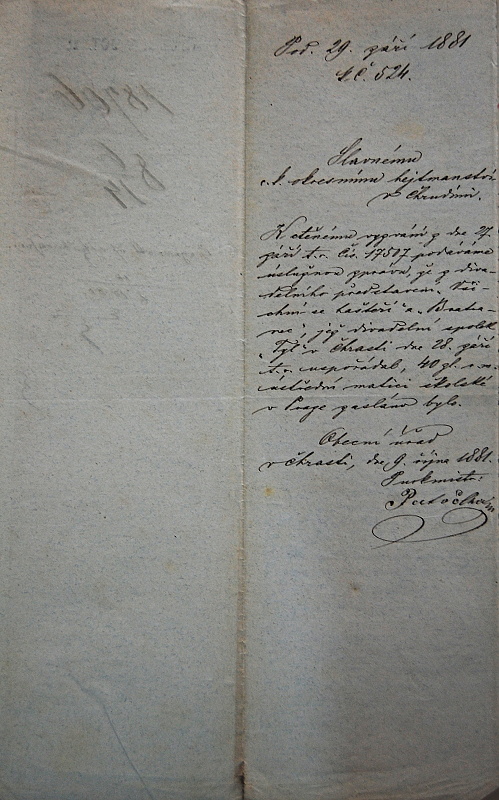 Pod. 29. září 1881
G.Č. 524.
Slavnému
c. k. okresnímu hejtmanství
v Chrudimi.
K ctěnému vyzvání z dne 27.
září t. r. Čís. 17507 podáváme
úslužnou zprávu, že z diva-
delního představení „Vši-
chni se haštěří“ a „Bratra-
nec“, jež divadelní spolek
„Tyl“ v Chrasti dne 28. září
t. r. uspořádal, 40 zl. r. m.
ústřední matici školské
v Praze zasláno bylo.
Obecní úřad
v Chrasti, dne 9. října 1881.
Purkmistr:
18706
8/4